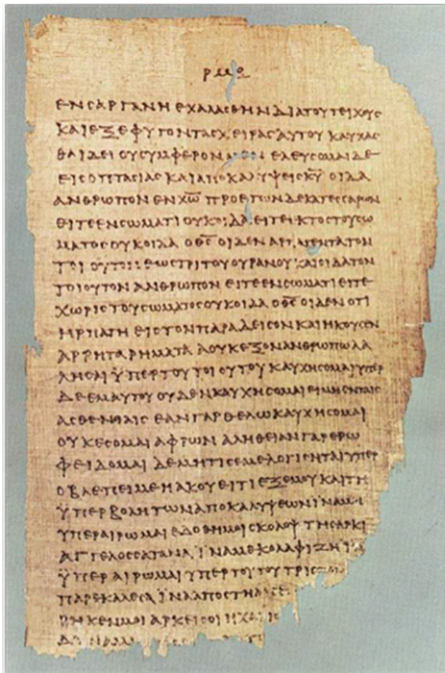 ΕΝϹΑΡΓΑΝΗΕΧΑΛΑϹΘΗΝΔΙΑΤΟΥΤΕΙΧΟΥϹ
ΚΑΙΕΞΕΦΥΓΟΝΤΑϹΧΕΙΡΑϹΑΥΤΟΥΚΑΥΧΑϹ
ΘΑΙΔΕΙΟΥϹΥΜΦΕΡΟΝ ΕΛΕΥϹΟΜΑΙΔΕ
ΕΙϹΟΠΤΑϹΙΑϹΚΑΙΑΠΟΚΑΛΥΨΕΙϹΚ̅Υ̅ΟΙΔΑ
ΑΝΘΡΩΠΟΝΕΝΧ̅Ω̅ΠΡΟΕΤΩΝΔΕΚΑΤΕϹϹΑΡΩΝ
ΕΙΤΕΕΝϹΩΜΑΤΙΟΥΚΟΙΔΑΕΙΤΕΕΚΤΟϹΤΟΥϹΩ
ΜΑΤΟϹΟΥΚΟΙΔΑΟΘ̅Ϲ̅ΟΙΔΕΝΑΡΠΑΓΕΝΤΑΤΟΝ
ΤΟΙΟΥΤΟΝΕΩϹΤΡΙΤΟΥΟΥΡΑΝΟΥΚΑΙΟΙΔΑΤΟΝ
ΤΟΙΟΥΤΟΝΑΝΘΡΩΠΟΝΕΙΤΕΕΝϹΩΜΑΤΙΕΙΤΕ
ΧΩΡΙϹΤΟΥϹΩΜΑΤΟϹΟΥΚΟΙΔΑΟΘ̅Ϲ̅ΟΙΔΕΝΟΤΙ
ΗΡΠΑΓΗΕΙϹΤΟΝΠΑΡΑΔΕΙϹΟΝΚΑΙΗΚΟΥϹΕΝ
ΑΡΡΗΤΑΡΗΜΑΤΑΑΟΥΚΕΞΟΝΑΝΘΡΩΠΩΛΑ
ΛΗϹΑΙΫΠΕΡΤΟΥΤΟΙΟΥΤΟΥΚΑΥΧΗϹΟΜΑΙΥΠΕΡ
ΔΕΕΜΑΥΤΟΥΟΥΔΕΝΚΑΥΧΗϹΟΜΑΙΕΙΜΗΕΝΤΑΙϹ
ΑϹΘΕΝΕΙΑΙϹΕΑΝΓΑΡΘΕΛΩΚΑΥΧΗϹΟΜΑΙ
ΟΥΚΕϹΟΜΑΙΑΦΡΩΝΑΛΗΘΕΙΑΝΓΑΡΕΡΩ
ΦΕΙΔΟΜΑΙΔΕΜΗΤΙϹΕΜΕΛΟΓΙϹΗΤΑΙΥΠΕΡ
ΟΒΛΕΠΕΙΜΕΗΑΚΟΥΕΙΤΙΕΞΕΜΟΥΚΑΙΤΗ
ΫΠΕΡΒΟΛΗΤΩΝΑΠΟΚΑΛΥΨΕΩΝΪΝΑΜΗ
ΥΠΕΡΑΙΡΩΜΑΙΕΔΟΘΗΜΟΙϹΚΟΛΟΨΤΗϹΑΡΚΙ
ΑΓΓΕΛΟϹϹΑΤΑΝΑΪΝΑΜΕΚΟΛΑΦΙΖΗΪΝΑ
ΫΠΕΡΑΙΡΩΜΑΙΥΠΕΡΤΟΥΤΟΥΤΡΙϹ
ΠΑΡΕΚΑΛΕϹΑΪΝΑΑΠΟΣΤΗ
ΡΗΚΕΝΜΟΙΑΡΚΕΙϹΟΙΗΧΑΡΙϹ